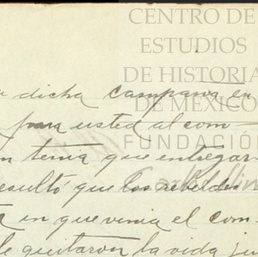 CENTRO DE
ESTUDIOS
DE HISTORIA
DE MÉXICO
FUNDACIÓN
dicha campana en
para usted al com-
tenia que entregar
resultó que los rebeldes
en que venia el com-
le quitaron la vida